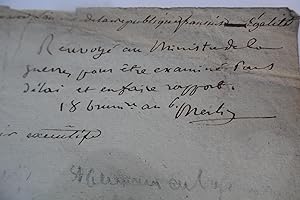 de la république française Égalité
Renvoyé au Ministre de la
guerre, pour être examiné sans
délai et en faire rapport.
18 brumaire an 6. Merlin
exécutif